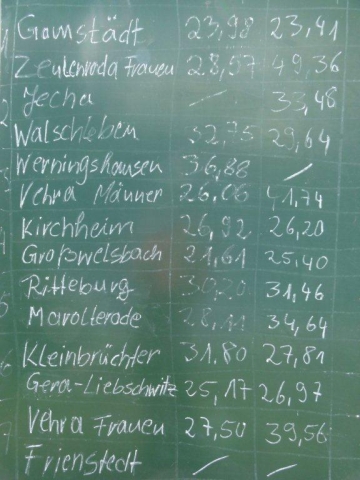 Gamstädt 23,98 23,41
Zeulenroda Frauen 28,57 49,36
Jecha / 33,48
Walschleben 32,75 29,64
Werningshausen 36,88 /
Vehra Männer 26,06 41,74
Kirchheim 26,92 26,20
Großwelsbach 21,61 25,40
Ritteburg 30,20 31,46
Marolterode 28,11 34,64
Kleinbrüchter 31,80 27,81
Gera-Liebschwitz 25,17 26,97
Vehra Frauen 27,50 39,56
Frienstedt / /